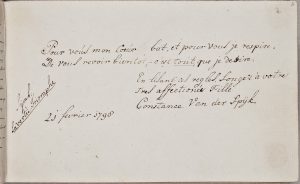 Pour vous mon Cœur bat, et pour vous je respire.
De vous revoir bientot, c'est tout que je desire.
En lisant ces regles Songez à votre
tres affectionée Fille
Constance Van der Spijk
23 fevrier 1796